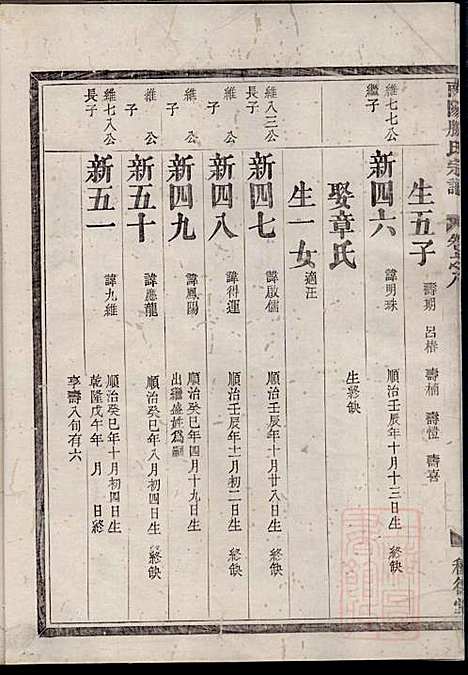 南陽滕氏宗譜 卷之八
生五子 壽期 呂椿 壽楠 壽愷 壽喜
維七七公繼子 新四六 諱明珠 順治壬辰年十月十三日生
娶章氏 生終缺
生一女 適汪
維八三公長子 新四七 諱啟儒 順治壬辰年十月廿八日生 終缺
維 公 子 新四八 諱得運 順治壬辰年十一月初二日生 終缺
維 公 子 新四九 諱鳳陽 順治癸巳年四月十九日生 出繼盛姓為嗣
維 公 子 新五十 諱應龍 順治癸巳年八月初四日生 終缺
維七八公長子 新五一 諱九維 順治癸巳年十月初四日生
乾隆戊午年 月 日終
享壽八旬有六